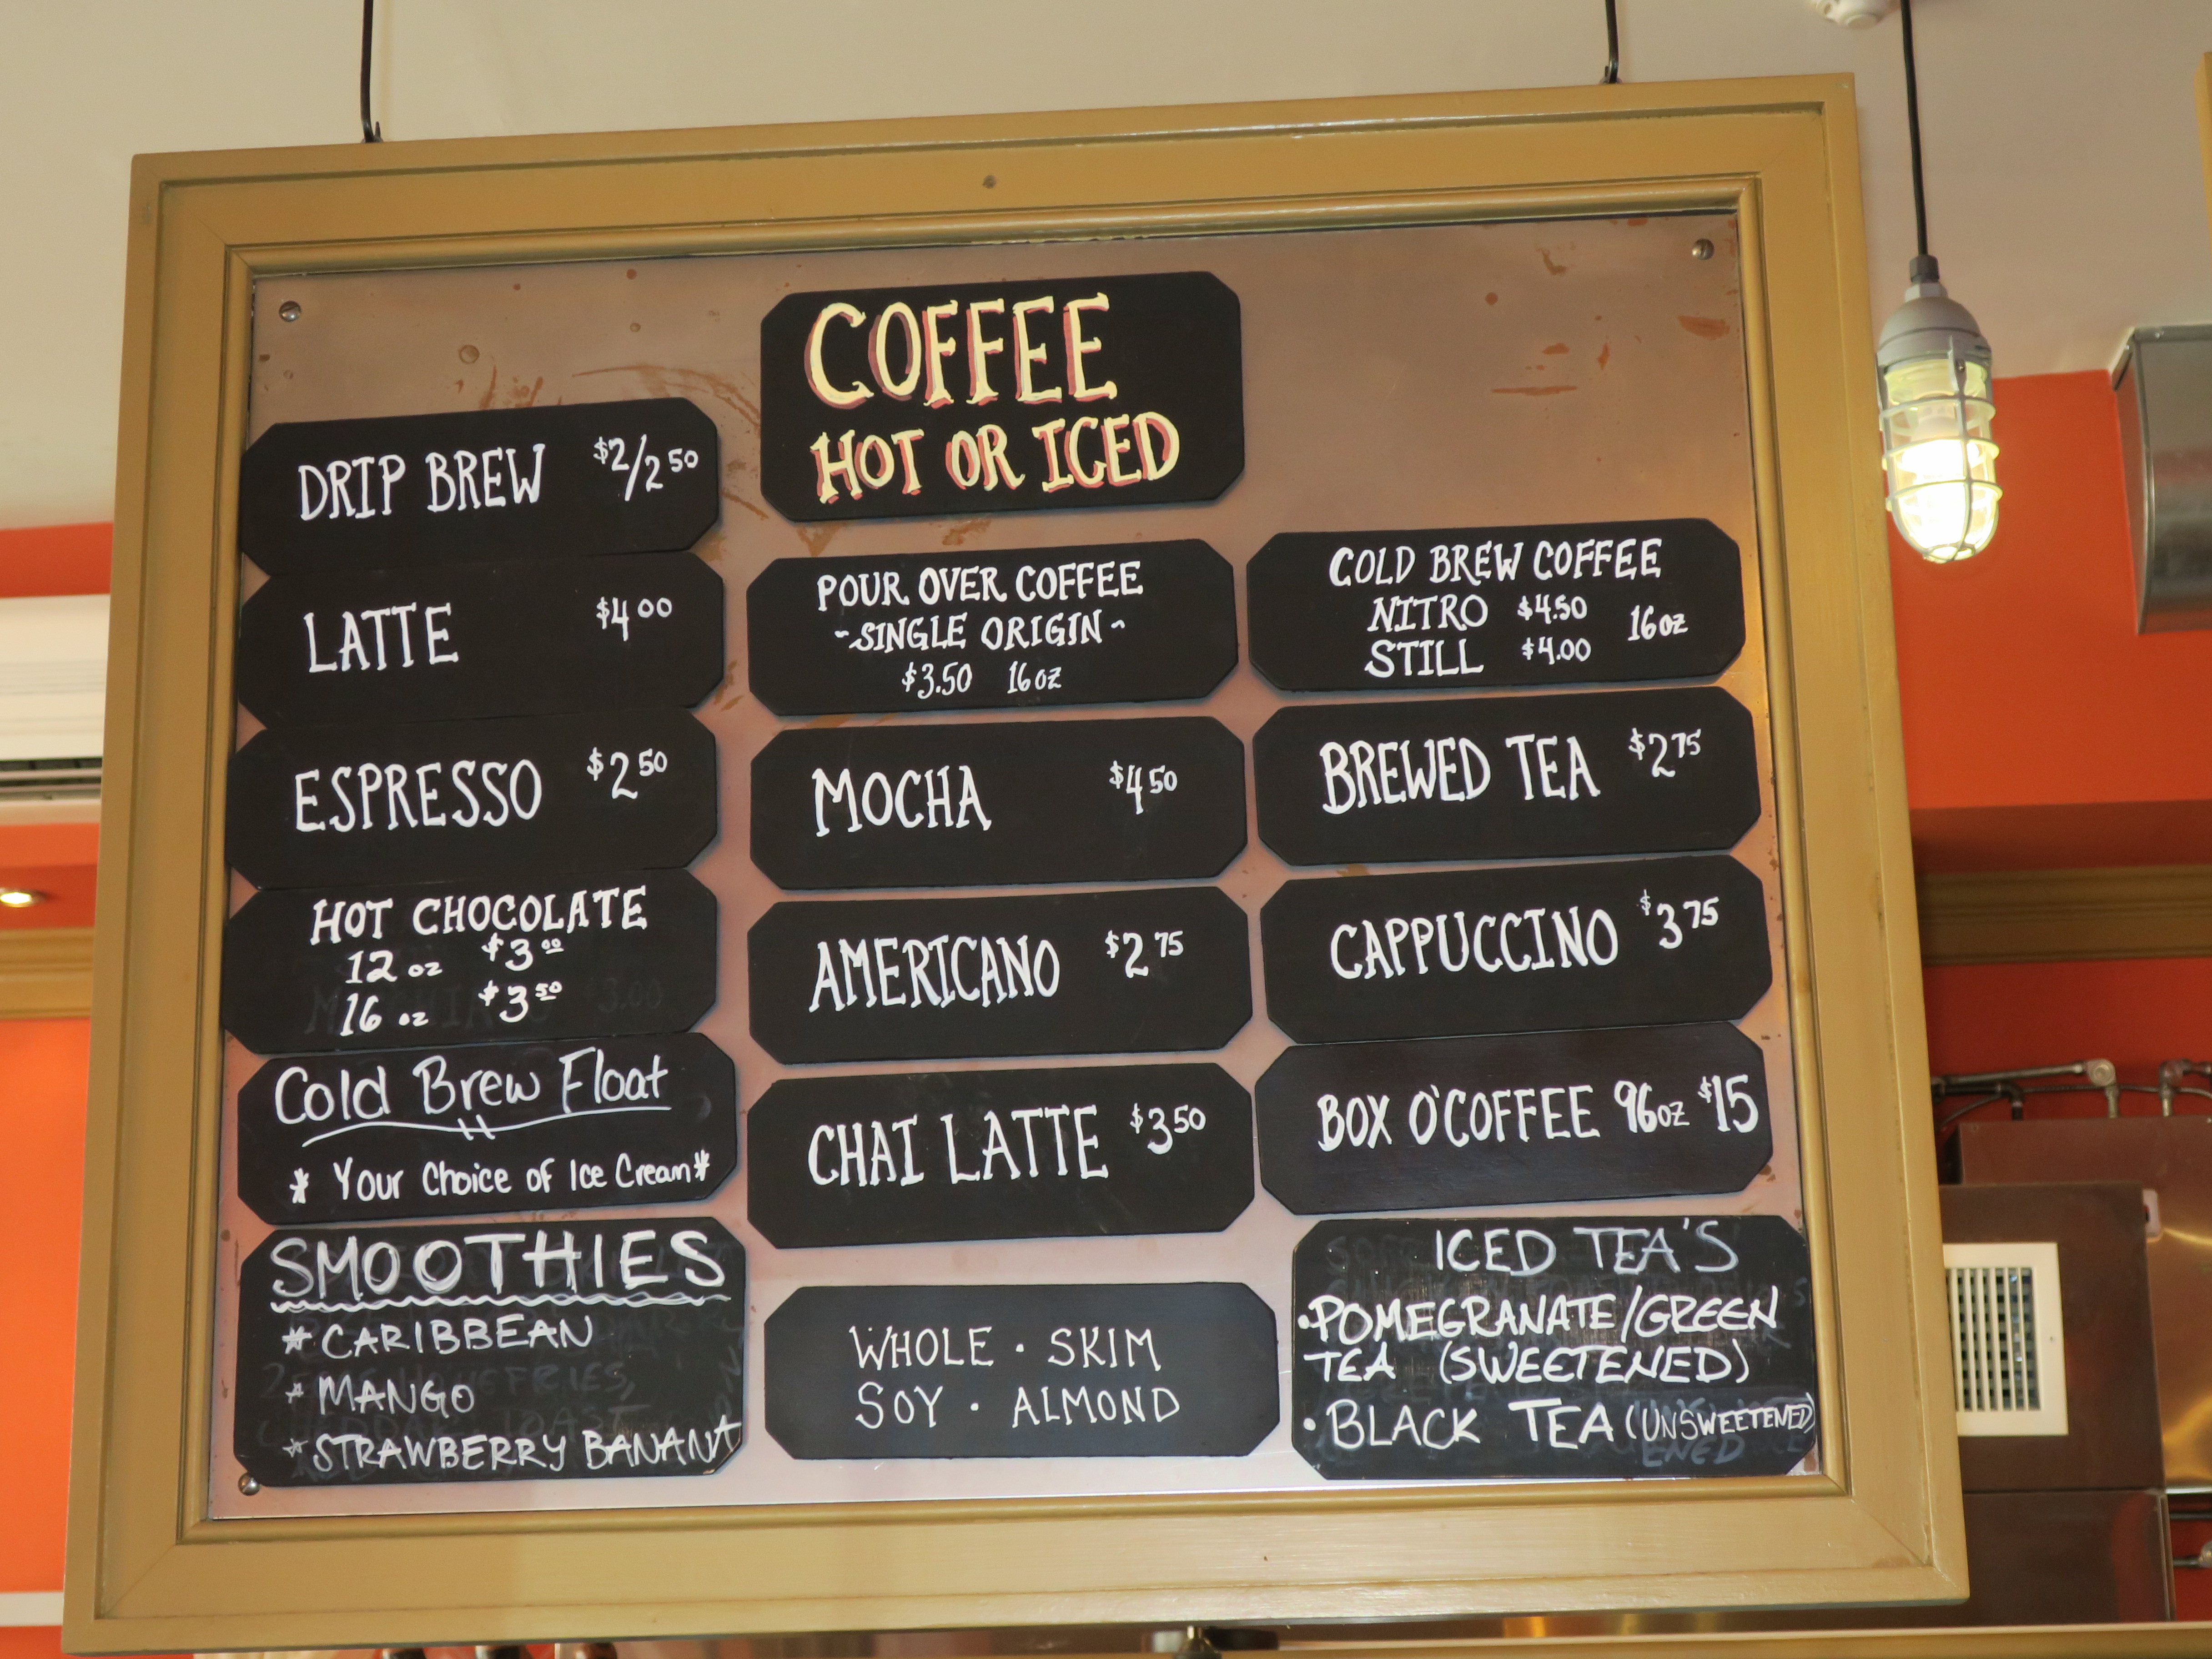 COFFEE
HOT OR ICED
DRIP BREW $2/2 50
LATTE $4 00
ESPRESSO $2 50
HOT CHOCOLATE
12 oz $3 00
16 oz $3 50
Cold Brew Float
* Your Choice of Ice Cream *
SMOOTHIES
* CARIBBEAN
* MANGO
* STRAWBERRY BANANA
POUR OVER COFFEE
~SINGLE ORIGIN~
$3.50 16 oz
MOCHA $4 50
AMERICANO $2 75
CHAI LATTE $3 50
WHOLE · SKIM
SOY · ALMOND
COLD BREW COFFEE
NITRO $4.50 16 oz
STILL $4.00
BREWED TEA $2 75
CAPPUCCINO $3 75
BOX O'COFFEE 96 oz $15
ICED TEA'S
•POMEGRANATE/GREEN
TEA (SWEETENED)
• BLACK TEA (UNSWEETENED)